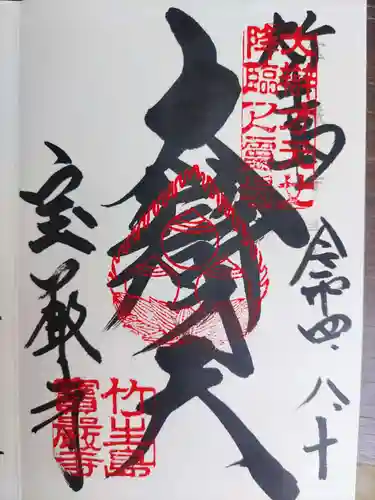 竹生島
令和四.八.十
大辯才天
宝厳寺
大辯才天女
降臨之靈
竹生島
寶嚴寺